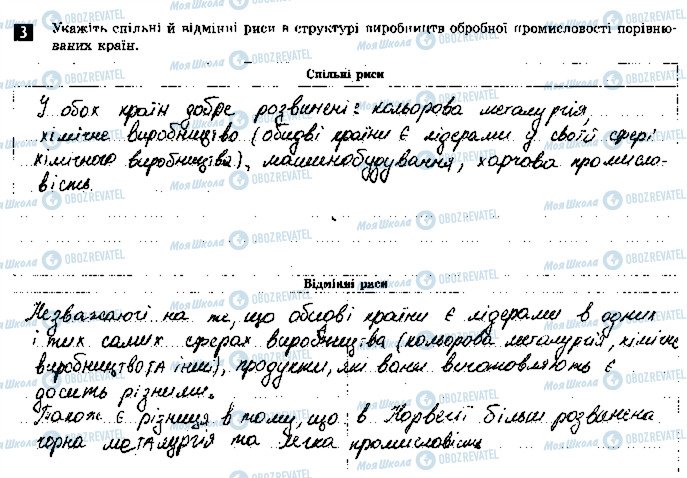 3 Укажіть спільні й відмінні риси в структурі виробництв обробної промисловості порівню-
ваних країн.
Спільні риси
У обох країн добре розвинені: кольорова металургія,
хімічне виробництво (обидві країни є лідерами у своїй сфері
хімічного виробництва), машинобудування, харчова промисло-
вість.
Відмінні риси
Незважаючі на те, що обидві країни є лідерами в одних
і тих самих сферах виробництва (кольорова металургія, хімічне
виробництво та інші), продукти, які вони виготовляють є
досить різними.
Також є різниця в тому, що в Норвегії більш розвинена
чорна металургія та легка промисловість
Моя Школа OBOZREVATEL